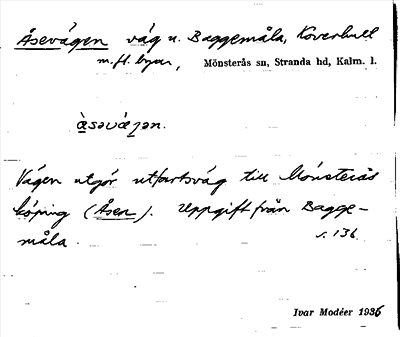 Åsevägen väg u. Baggemåla, Koverhult
m. fl. byar, Mönsterås sn, Stranda hd, Kalm. l.
Vägen utgör utfartsväg till Mönsterås
köping (Åsen). Uppgift från Bagge-
måla. s. 136.
Ivar Modéer 1936